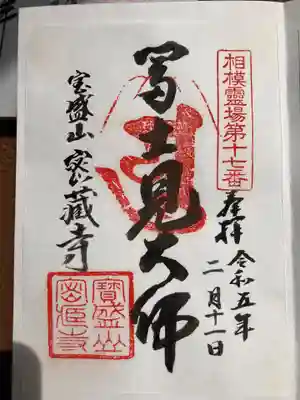 相模霊場第十七番
奉拝
令和五年
二月十一日
冨士見大師
宝盛山
密蔵寺
寶盛山
密蔵寺